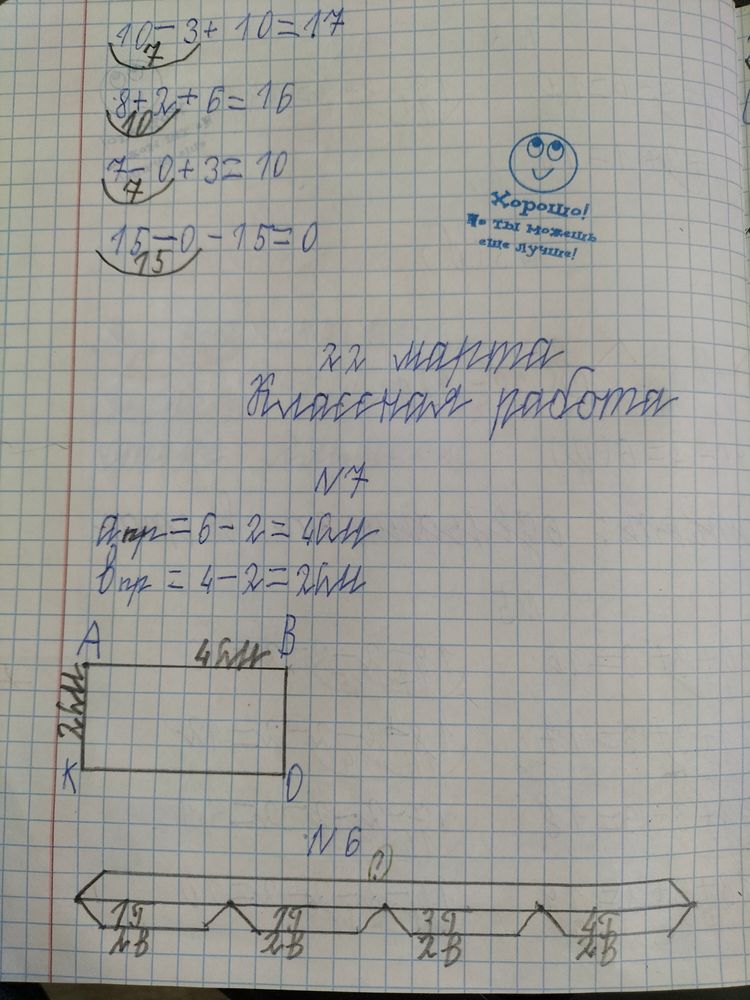 10-3+10=17
7
8+2+6=16
10
7-0+3=10
7
15-0-15=0
15
Хорошо!
Но ты можешь
еще лучше!
22 марта
Классная работа
N7
aпр=6-2=4см
bпр=4-2=2см
A B
4см
2см
K D
N6
?
1т 1т 3т 4т
2в 2в 2в 2в